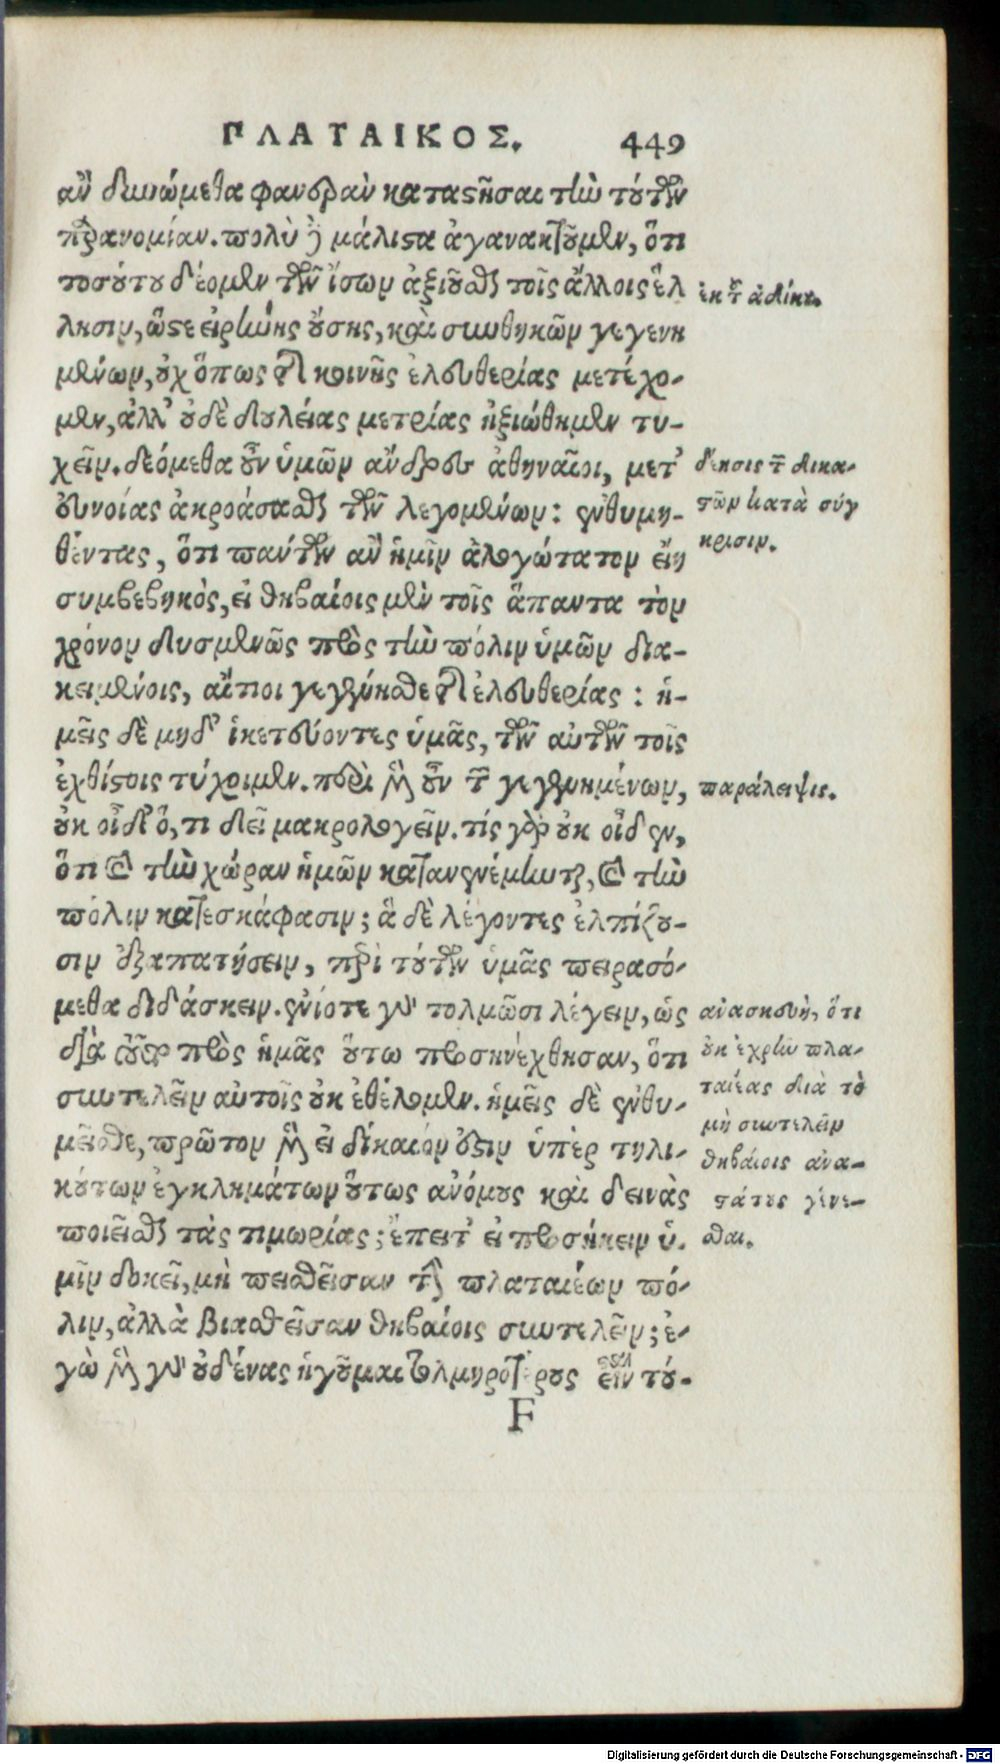 ΠΛΑΤΑΙΚΟΣ. 449
ἂν δυνώμεθα φανερὰν καταστῆσαι τὴν τούτων
παρανομίαν. πολὺ δὲ μάλιστα ἀγανακτοῦμεν, ὅτι
τοσούτου δέομεν τῶν ἴσων ἀξιοῦσθαι τοῖς ἄλλοις ἕλ
λησιν, ὥστε εἰρήνης οὔσης, καὶ συνθηκῶν γεγενη
μένων, οὐχ ὅπως τῆς κοινῆς ἐλευθερίας μετέχο-
μεν, ἀλλ' οὐδὲ δουλείας μετρίας ἠξιώθημεν τυ-
χεῖν. δεόμεθα οὖν ὑμῶν ἄνδρες ἀθηναῖοι, μετ'
εὐνοίας ἀκροάσασθαι τῶν λεγομένων: ἐνθυμη-
θέντας, ὅτι πάντων ἂν ἡμῖν ἀλογώτατον εἴη
συμβεβηκὸς, εἰ θηβαίοις μὲν τοῖς ἅπαντα τὸν
χρόνον δυσμενῶς πρὸς τὴν πόλιν ὑμῶν δια-
κειμένοις, αἴτιοι γεγένησθε τῆς ἐλευθερίας: ἡ-
μεῖς δὲ μηδ' ἱκετεύοντες ὑμᾶς, τῶν αὐτῶν τοῖς
ἐχθίστοις τύχοιμεν. περὶ μὲν οὖν τῶν γεγενημένων,
οὐκ οἶδ' ὅ, τι δεῖ μακρολογεῖν. τίς γὰρ οὐκ οἶδεν,
ὅτι καὶ τὴν χώραν ἡμῶν κατανενέμηνται, καὶ τὴν
πόλιν κατεσκάφασιν; ἃ δὲ λέγοντες ἐλπίζου-
σιν ἐξαπατήσειν, περὶ τούτων ὑμᾶς πειρασό-
μεθα διδάσκειν. ἐνίοτε γὰρ τολμῶσι λέγειν, ὡς
διὰ τοῦτο πρὸς ἡμᾶς οὕτω προσηνέχθησαν, ὅτι
συντελεῖν αὐτοῖς οὐκ ἐθέλομεν. ἡμεῖς δὲ ἐνθυ-
μεῖσθε, πρῶτον μὲν εἰ δίκαιόν ἐστιν ὑπὲρ τηλι-
κούτων ἐγκλημάτων οὕτως ἀνόμους καὶ δεινὰς
ποιεῖσθαι τὰς τιμωρίας; ἔπειτ' εἰ προσήκειν ὑ-
μῖν δοκεῖ, μὴ πεισθεῖσαν τὴν πλαταιέων πό-
λιν, ἀλλὰ βιασθεῖσαν θηβαίοις συντελεῖν; ἐ-
γὼ μὲν γὰρ οὐδένας ἡγοῦμαι τολμηροτέρους εἶναι τού-
F
ἐκ τοῦ ἀδίκου.
δέησις τῶν δικα-
στῶν κατὰ σύγ
κρισιν.
παράλειψις.
ἀνασκευὴ, ὅτι
οὐκ ἐχρῆν πλα-
ταιέας διὰ τὸ
μὴ συντελεῖν
θηβαίοις ἀνα-
στάτους γίνε-
σθαι.
Digitalisierung gefördert durch die Deutsche Forschungsgemeinschaft - DFG